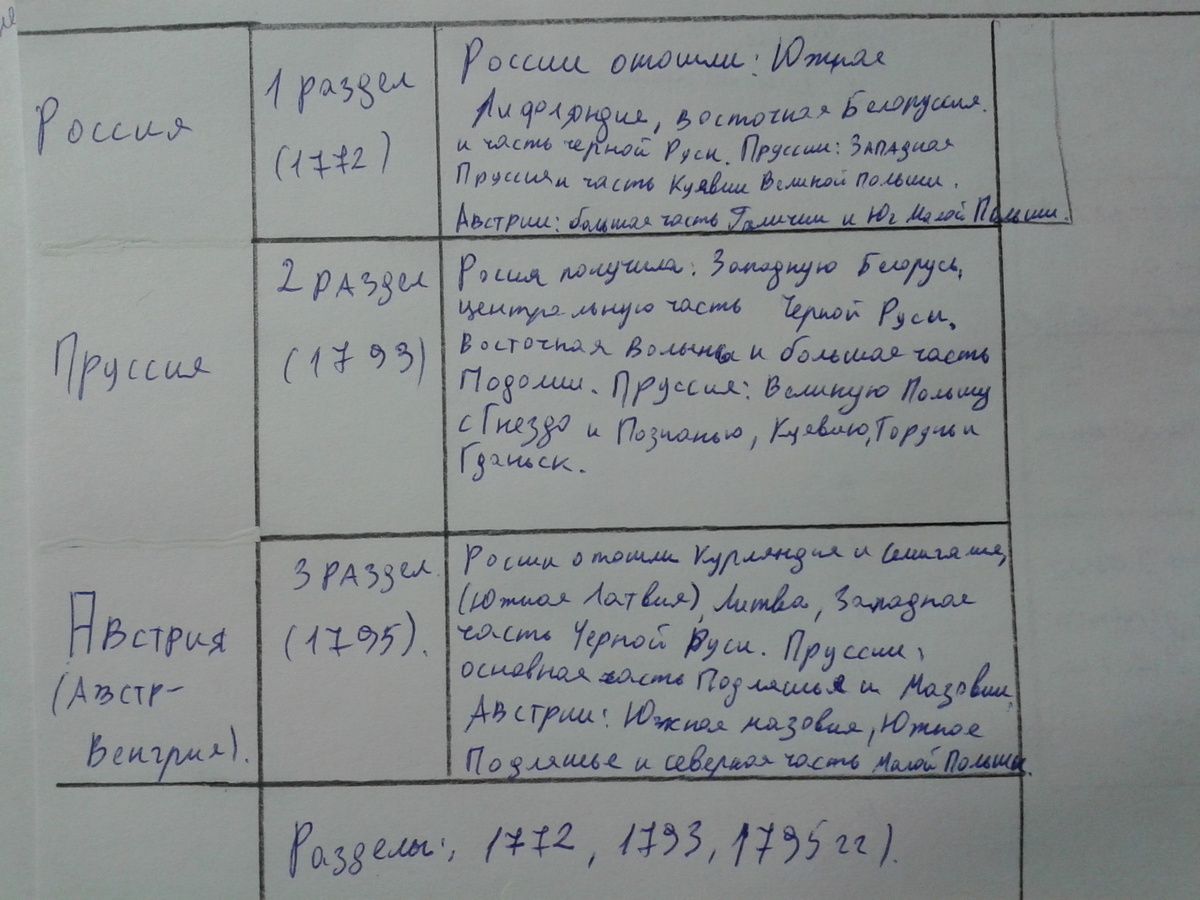 Россия
1 раздел
(1772)
России отошли: Южная
Лифляндия, Восточная Белоруссия.
и часть черной Руси. Пруссии: Западная
Пруссия и часть Куявии Великой Польши.
Австрии: большая часть Галиции и Юг Малой Польши.
Пруссия
2 раздел
(1793)
Росия получила: Западную Белорусь,
центральную часть Черной Руси,
Восточная Волынь и большая часть
Подолии. Пруссия: Великую Польшу
с Гнездо и Познанью, Куявию, Торунь и
Гданьск.
Австрия
(Австр-
Венгрия).
3 раздел.
(1795).
Росии отошли Курляндия и Семигалия,
(Южная Латвия), Литва, Западная
часть Черной Руси. Пруссии:
основная часть Подляшья и Мазовии,
Австрии: Южная мазовия, Южное
Подляшье и северная часть Малой Польши.
Разделы:, 1772, 1793, 1795 гг).